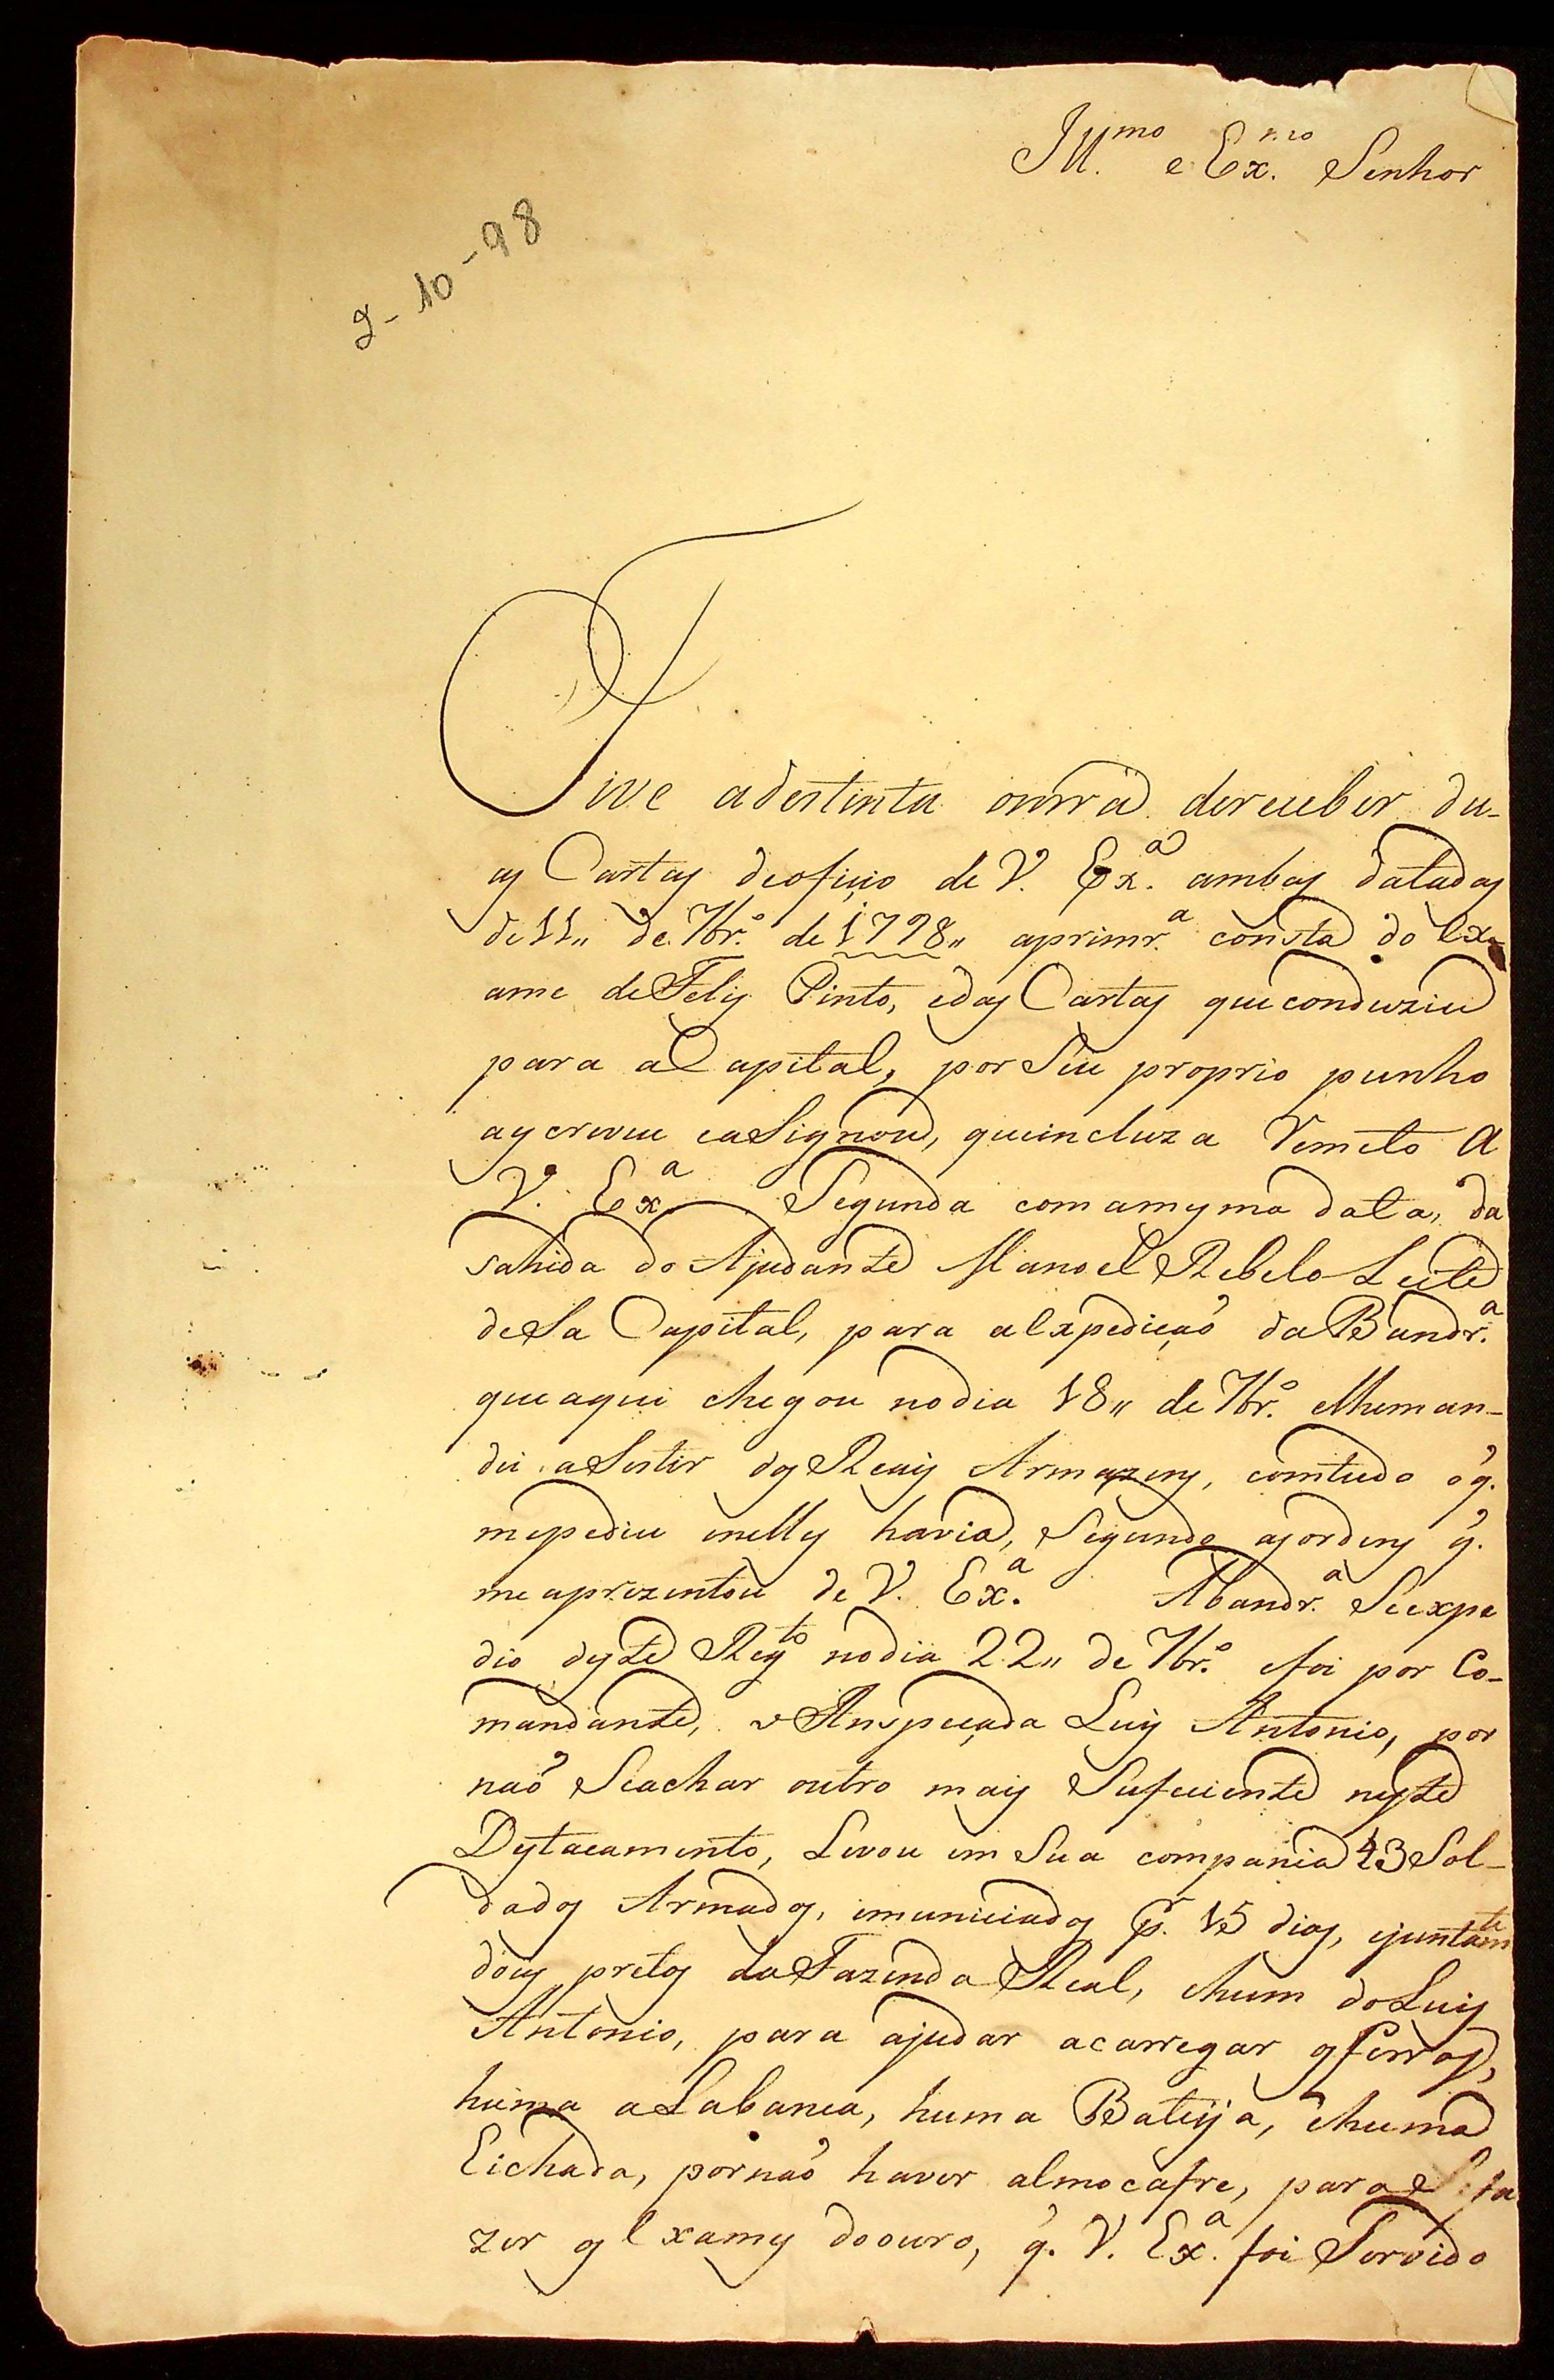 Ill.mo e Ex.mo Senhor
2-10-98
Tive a destinta onrra de receber du-
as Cartas de oficio de V. Ex.a ambas datadas
de 11,, de 7br.o de 1798,, aprimr.a consta do Ex-
ame de Felis Pinto, e das Cartas que conduziu
para a Capital, por Seu proprio punho
as creveu e aSignou, que incluza Remeto A
V. Ex.a Segunda com a mesma data, da
sahida do Ajudante Manoel Rebelo Leite
deSa Capital, para a Expedicaó da Bandr.a
que aqui chegou no dia 18,, de 7br.o e lhe man-
dei aSestir dos Reais Armazens, com tudo o q.
me pediu e nelles havia, Segundo as ordens q.
me aprezentou de V. Ex.a A bandr.a Se expe
dio deste Reg.to no dia 22,, de 7br.o e foi por Co-
mandante, o Anspeçada Luis Antonio, por
naó Se achar outro mais Suficiente neste
Destacamento, Levou em Sua compania 43 Sol-
dados Armados, e municiados p.r 15 dias, e juntam.te
dous pretos da Fazenda Real, e hum do Luis
Antonio, para ajudar a carregar os ferros,
huma a Labanca, huma Bateya, e huma
Eichada, por naó haver almocafre, para Se fa
zer os Exames do ouro, q. V. Ex.a foi Servido